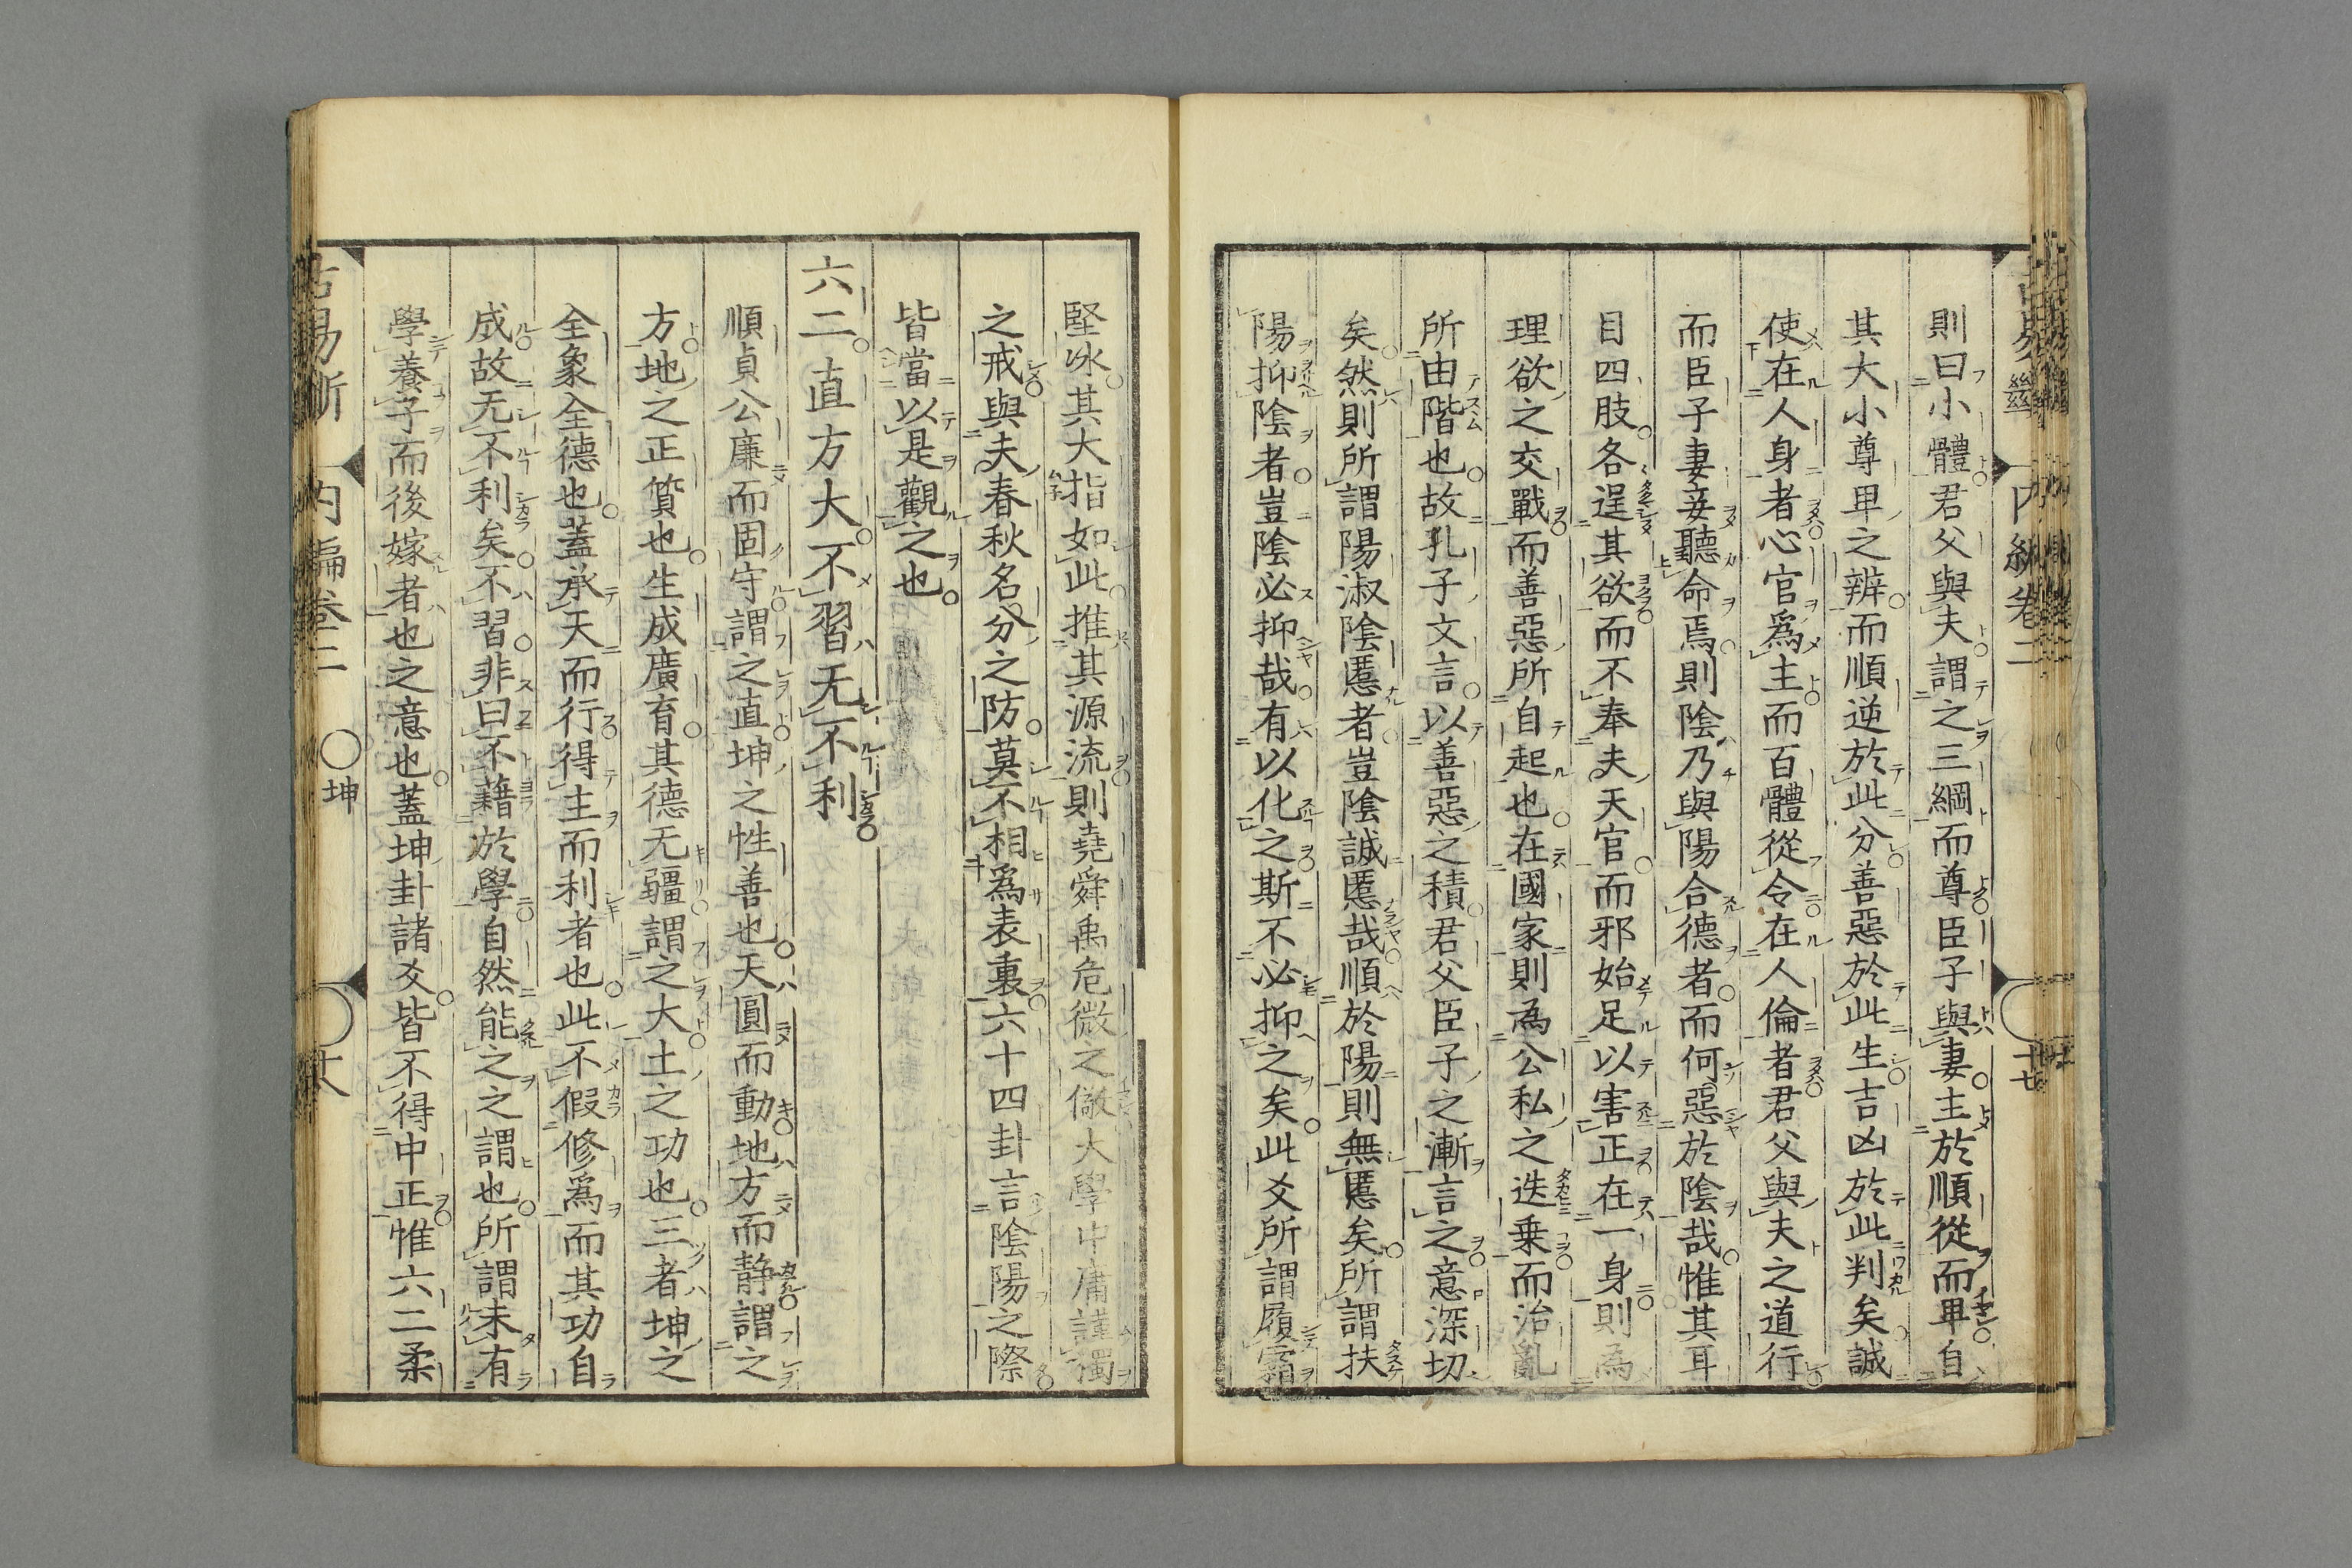 則曰小體君父與夫謂之三綱而尊臣子與妻主於順從而卑自
其大小尊卑之辨而順逆於此分善惡於此生吉凶於此判矣誠
使在人身者心官爲主而百體從令在人倫者君父與夫之道行
而臣子妻妾聽命焉則陰乃與陽合德者而何惡於陰哉惟其耳
目四肢各逞其欲而不奉夫天官而邪始足以害正在一身則為
理欲之交戰而善惡所自起也在國家則為公私之迭乗而治亂
所由階也故孔子文言以善惡之積君父臣子之漸言之意深切
矣然則所謂陽淑陰慝者豈陰誠慝哉順於陽則無慝矣所謂扶
陽抑陰者豈陰必抑哉有以化之斯不必抑之矣此爻所謂履霜
堅冰其大指如此推其源流則堯舜禹危微之儆大學中庸謹獨
之戒與夫春秋名分之防莫不相爲表裏六十四卦言陰陽之際
皆當以是觀之也
六二直方大不習无不利
順貞公廉而固守謂之直坤之性善也天圓而動地方而靜謂之
方地之正質也生成廣育其德无疆謂之大土之功也三者坤之
全象全德也蓋承天而行得主而利者也此不假修爲而其功自
成故无不利矣不習非曰不藉於學自然能之之謂也所謂未有
學養子而後嫁者也之意也蓋坤卦諸爻皆不得中正惟六二柔
内編卷二
坤
十八
内編卷二
十七